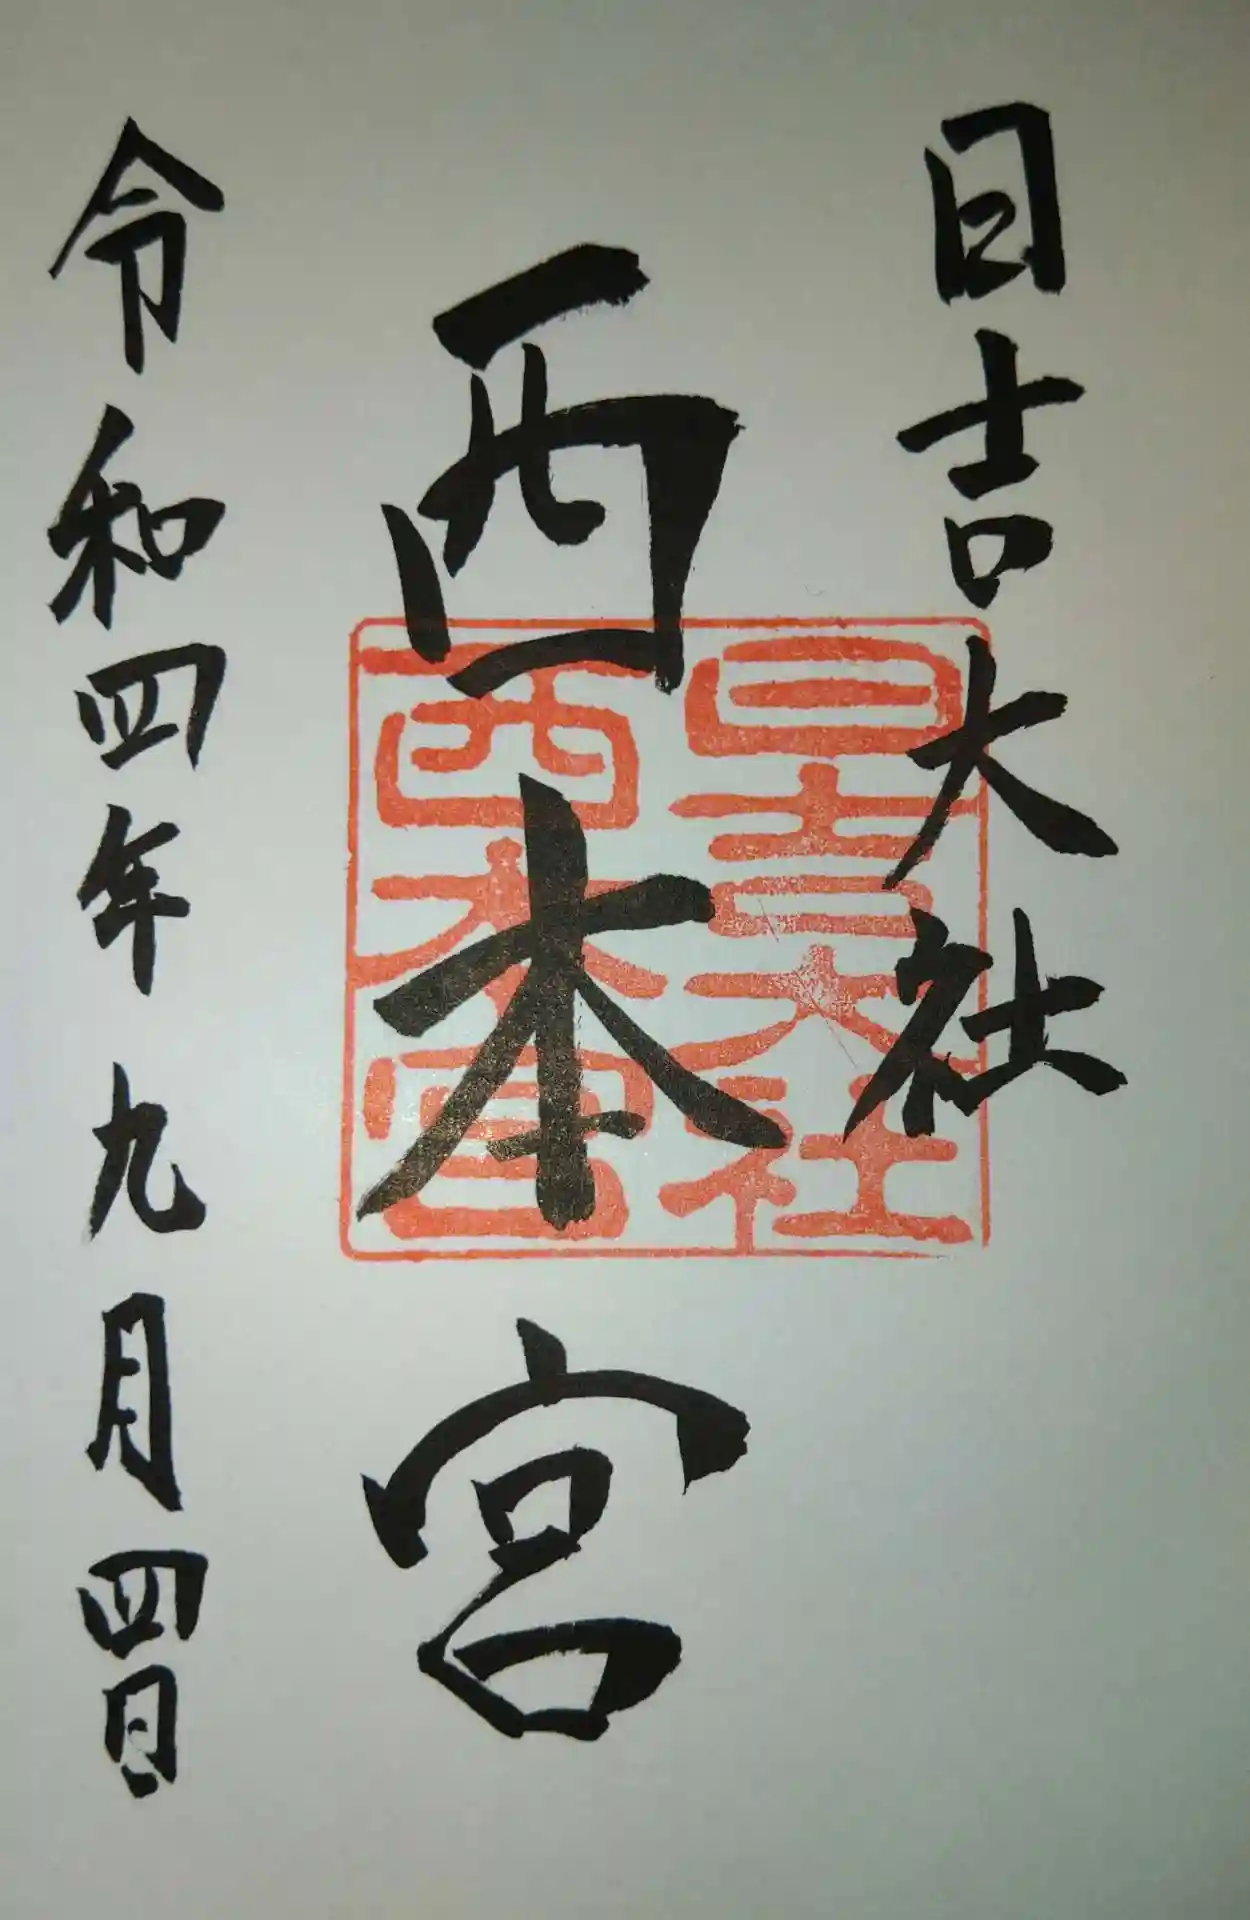 日吉大社
西本宮
日吉大社
西本宮
令和四年九月四日